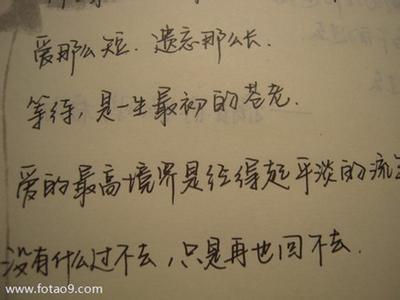 爱那么短.遗忘那么长.
等待,是一生最初的苍老.
爱的最高境界是经得起平淡的流
没有什么过不去,只是再也回不去.
www.fotao9.com